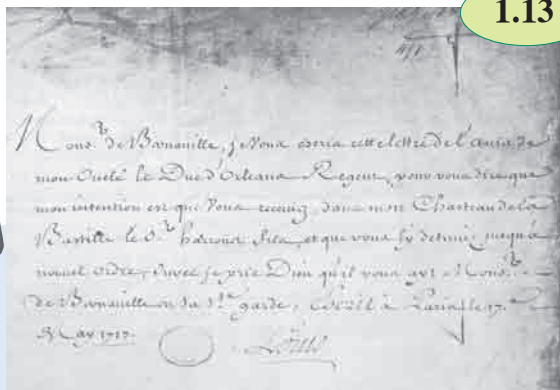 1.13
Mons.r de Bernaville, je vous escris cette lettre de l'avis de
mon Oncle le Duc d'Orleans Regent, pour vous dire que
mon intention est que vous receviez dans mon Chasteau de la
Bastille le S.r fils, et que vous l'y deteniez jusqu'a
nouvel ordre, je prie Dieu qu'il vous ayt Mons.r
de Bernaville en sa S.te garde, Escrit à Paris le 17.e
May 1717.
Louis